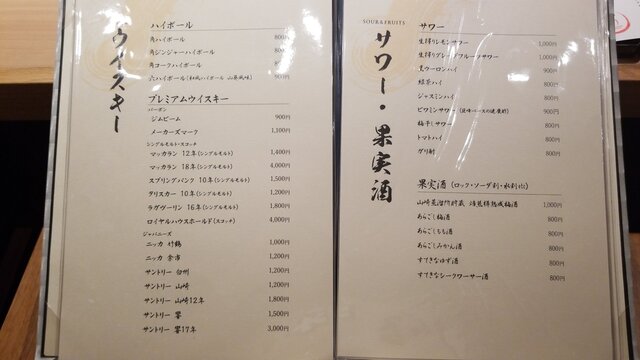 ウイスキー
ハイボール
角ハイボール 800円
角ジンジャーハイボール 800円
角コークハイボール 800円
六ハイボール(和風ハイボール 山椒風味) 900円
プレミアムウイスキー
バーボン
ジムビーム 900円
メーカーズマーク 1,100円
シングルモルト・スコッチ
マッカラン 12年(シングルモルト) 1,400円
マッカラン 18年(シングルモルト) 4,000円
スプリングバンク 10年(シングルモルト) 1,500円
タリスカー 10年(シングルモルト) 1,200円
ラガヴーリン 16年(シングルモルト) 1,800円
ロイヤルハウスホールド(スコッチ) 4,000円
ジャパニーズ
ニッカ 竹鶴 1,000円
ニッカ 余市 1,200円
サントリー 白州 1,200円
サントリー 山崎 1,200円
サントリー 山崎12年 1,800円
サントリー 響 1,500円
サントリー 響17年 3,000円
SOUR&FRUITS
サワー・果実酒
サワー
生搾りレモンサワー 1,000円
生搾りグレープフルーツサワー 1,000円
黒ウーロンハイ 900円
緑茶ハイ 800円
ジャスミンハイ 800円
ビワミンサワー 900円
梅干しサワー 800円
トマトハイ 800円
グリ酎 800円
果実酒(ロック・ソーダ割・水割り)
山崎蒸溜所貯蔵 焙煎樽熟成梅酒 1,000円
あらごし梅酒 800円
あらごしもも酒 800円
あらごしみかん酒 800円
すてきなゆず酒 800円
すてきなシークワーサー酒 800円